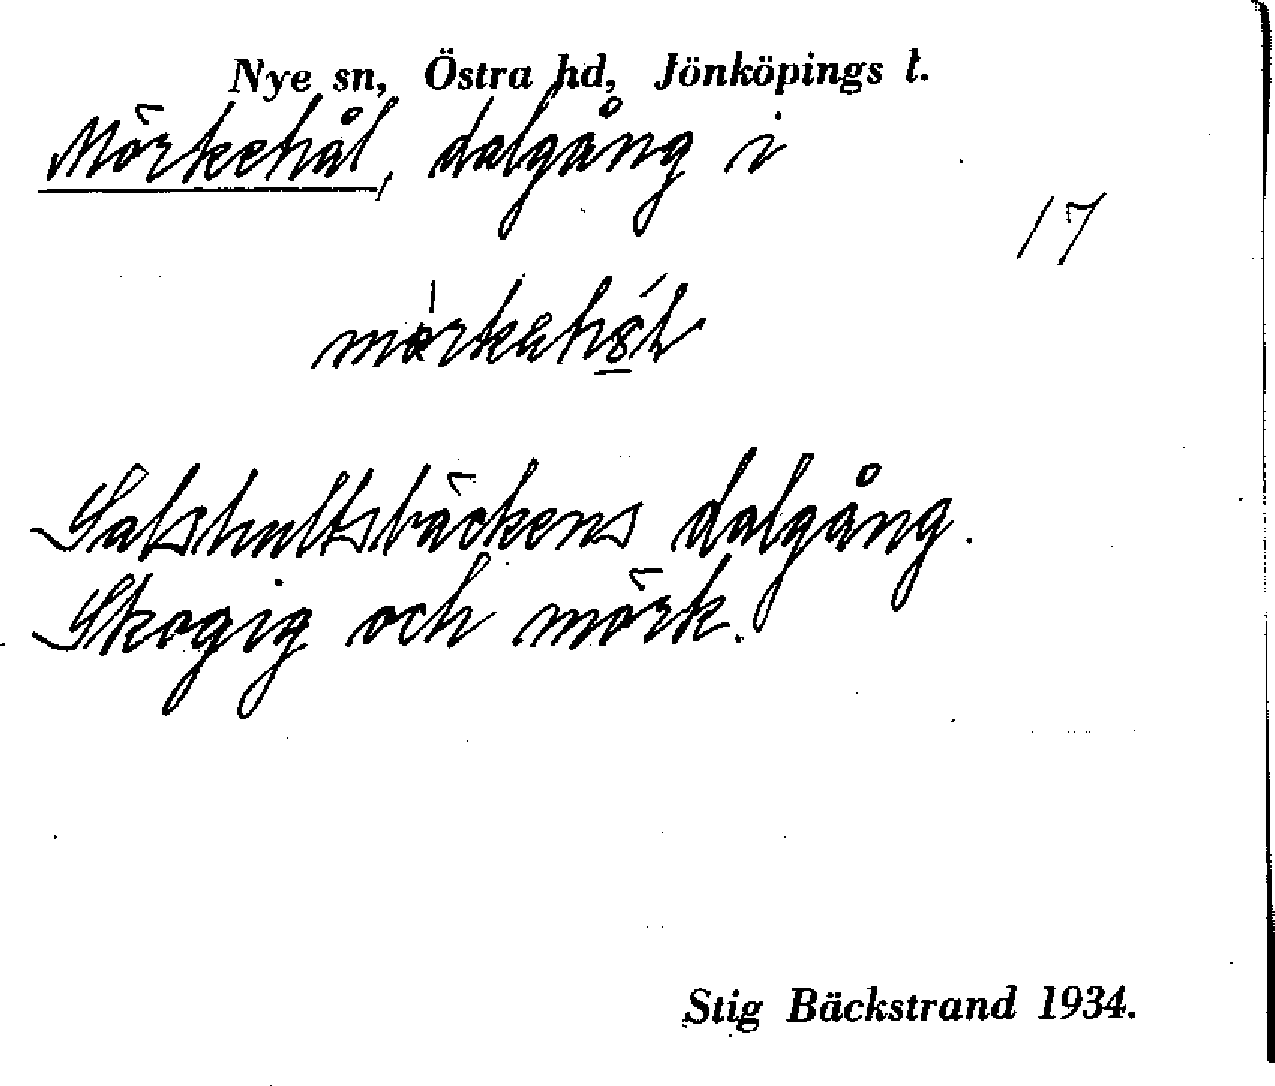 Nye sn, Östra hd, Jönköpings l.
Mörkehål, dalgång i
17
Salshultsbäckens dalgång.
Skogig och mörk.
Stig Bäckstrand 1934.